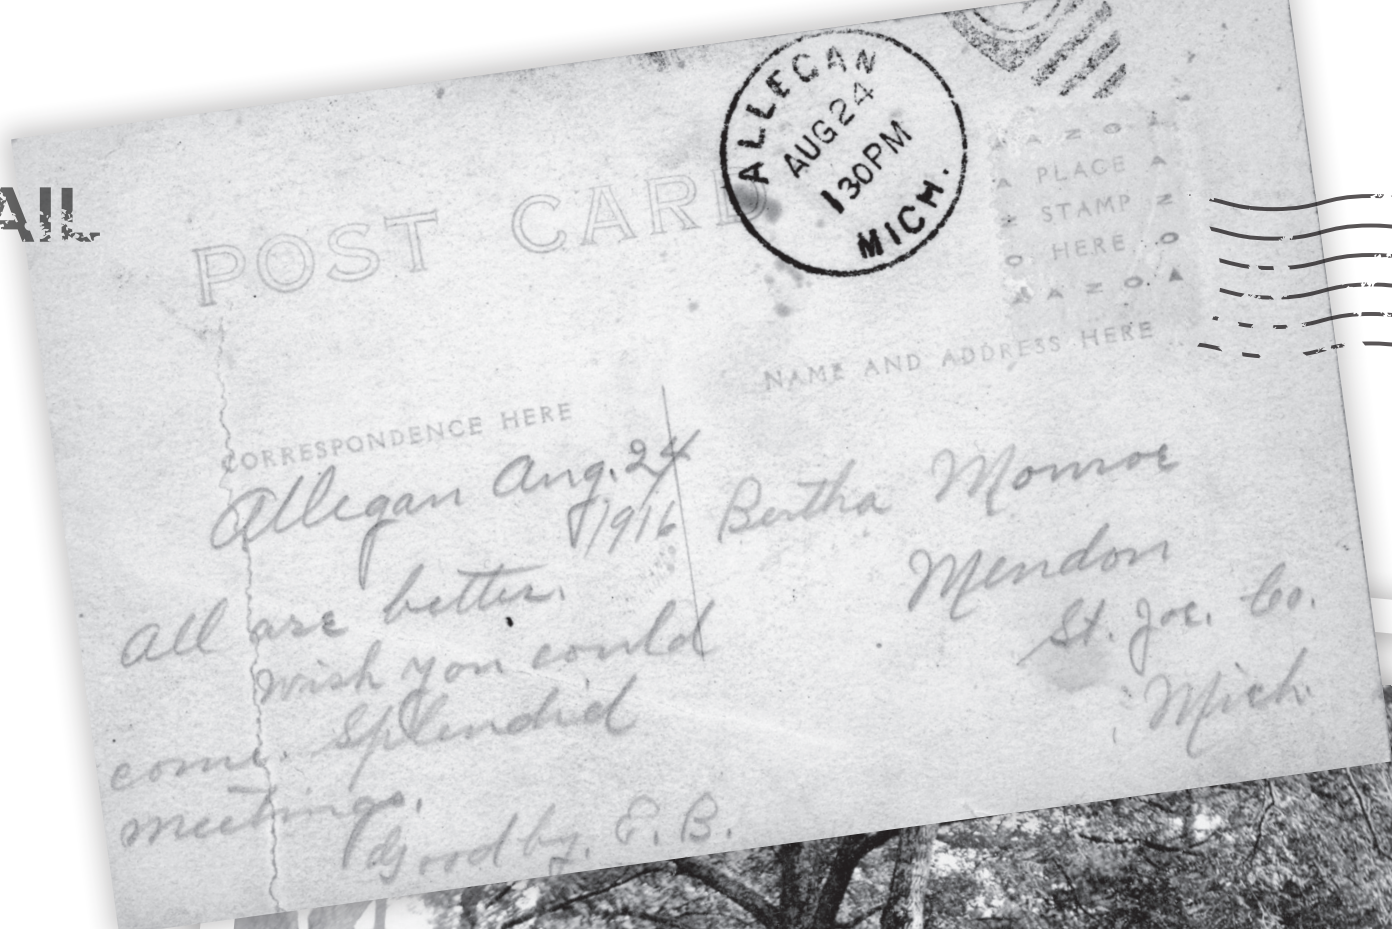 AIL
POST CARD
ALLEGAN
AUG 24
130PM
MICH.
AZO
PLACE
STAMP
HERE
AZO
NAME AND ADDRESS HERE
CORRESPONDENCE HERE
Allegan Aug. 24
1916
All are better.
Wish you could
come. Splendid
meetings.
Goodby. E. B.
Bertha Monroe
Mendon
St. Joe. Co.
Mich.